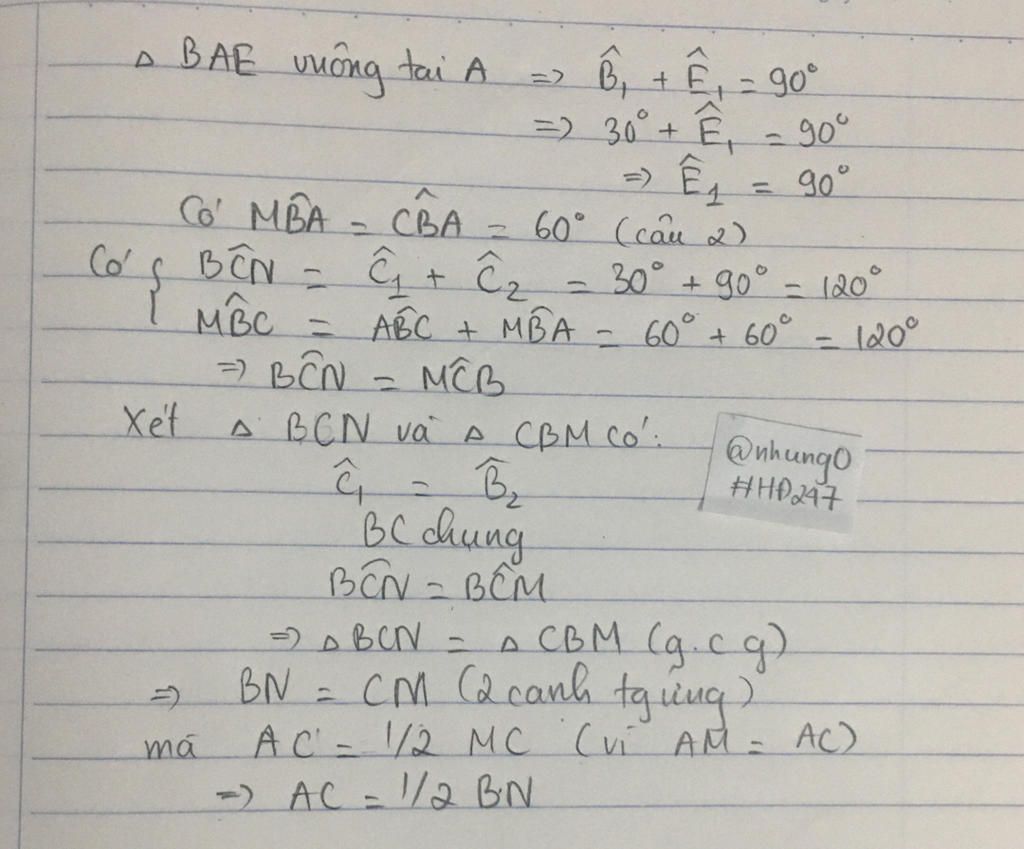 △ BAE vuông tai A => B̂₁ + Ê₁ = 90°
=> 30° + Ê₁ = 90°
=> Ê₁ = 90°
Có MB̂A = CB̂A = 60° (câu 2)
Có { BĈN = Ĉ₁ + Ĉ₂ = 30° + 90° = 120°
MB̂C = AB̂C + MB̂A = 60° + 60° = 120°
=> BĈN = MĈB
Xét △ BCN và △ CBM có:
Ĉ₁ = B̂₂
BC chung
BĈN = BĈM
=> △BCN = △ CBM (g.c g)
=> BN = CM (2 canh tg ứng)
mà AC = 1/2 MC (vì AM = AC)
=> AC = 1/2 BN
@nhung0
#HĐ247